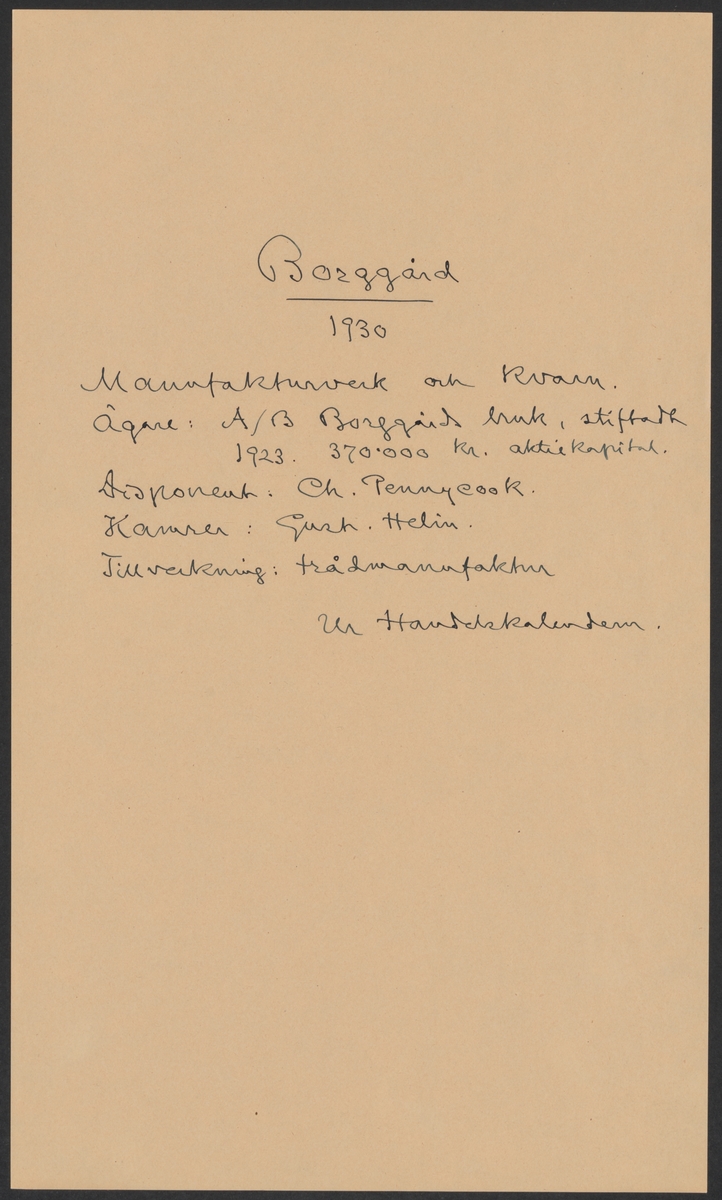 Borggård
1930
Manufakturverk och kvarn.
Ägare: A/B Borggårds bruk, stiftadt
1923. 370.000 kr. aktiekapital.
Disponent: Ch. Pennycook.
Kamrer: Gust. Helin.
Tillverkning: trådmanufaktur
Ur Handelskalendern.